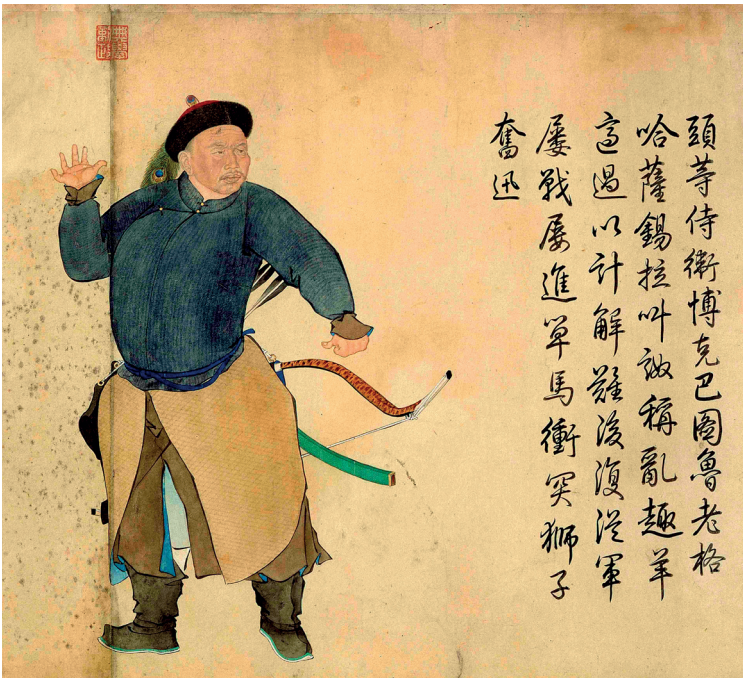 頭等侍衛博克巴圖魯老格
哈薩錫拉叫稱亂趣羊
過以計解難後復從軍
屢戰屢進單馬衝突獅子
奮迅